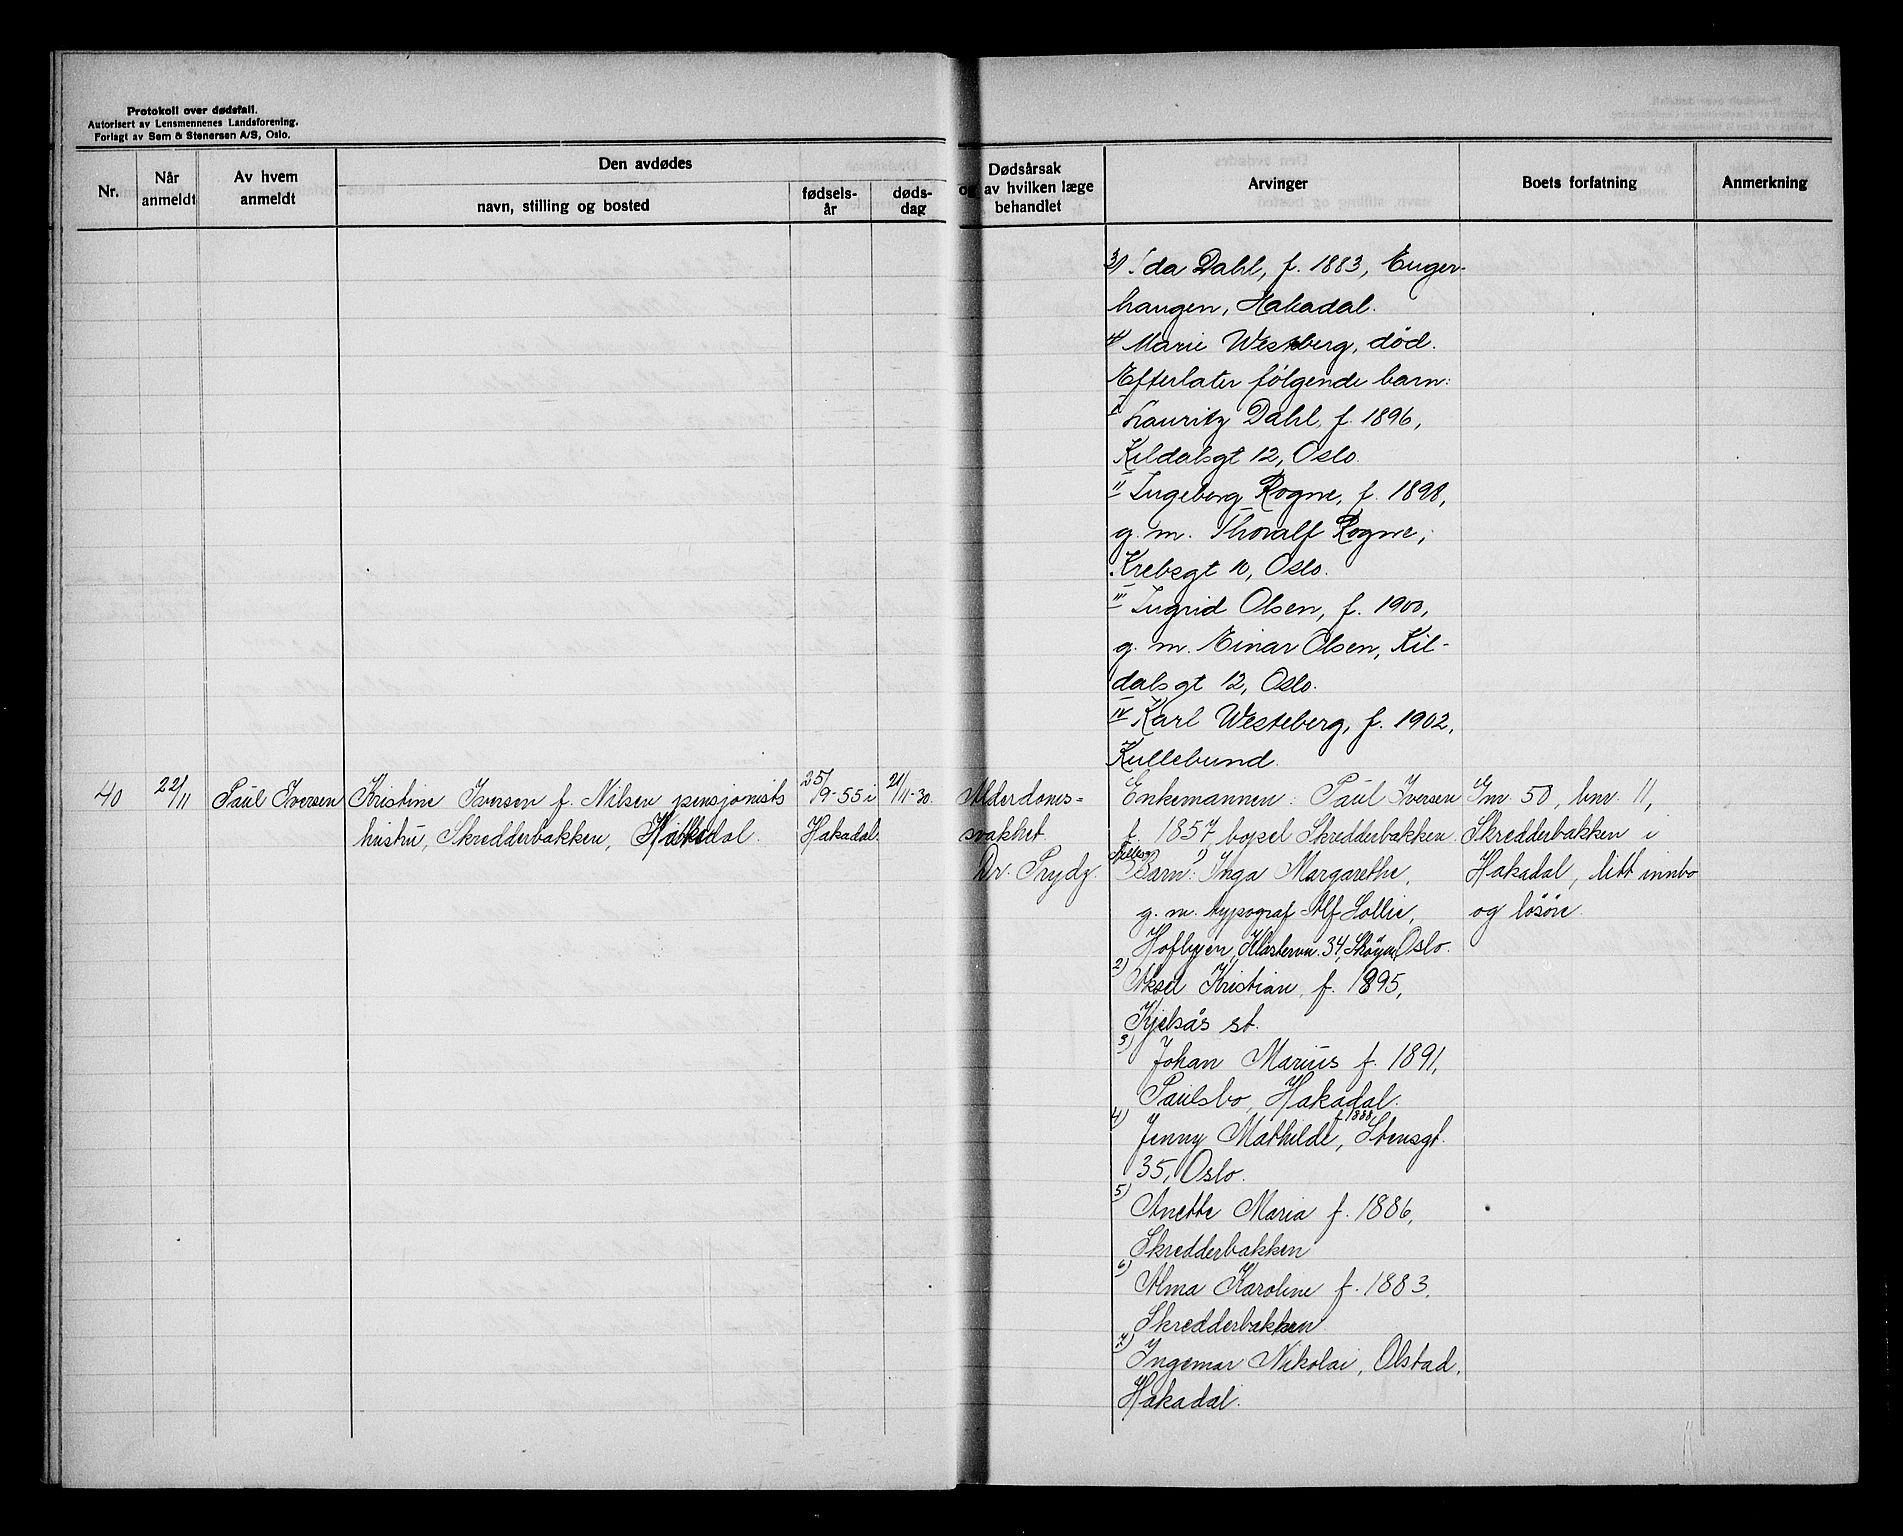 Protokoll over dødsfall.
Autorisert av Lensmennenes Landsforening.
Forlagt av Sem & Stenersen A/S, Oslo.
Nr.
Når
anmeldt
Av hvem
anmeldt
Den avdødes
navn, stilling og bosted
fødsels-
år
døds-
dag
Dødsårsak
og av hvilken læge
behandlet
Arvinger
Boets forfatning
Anmerkning
3) Ida Dahl, f. 1883, Enger-
haugen, Hakadal.
4) Marie Westberg, død.
Efterlater følgende barn:
I Lauritz Dahl, f. 1896,
Kildalsgt 12, Oslo.
II Ingeborg Rogne, f. 1898,
g. m. Thoralf Rogne,
Krebsgt 10, Oslo.
III Ingrid Olsen, f. 1900,
g. m. Einar Olsen, Kil-
dalsgt 12, Oslo.
IV Karl Westeberg, f. 1902,
Kullebund.
40
22/11
Paul Iversen
Kristine Iversen f. Nilsen pensjonists
hustru, Skredderbakken, Hakadal.
25/9-55 i
Hakadal.
21/11-30.
Alderdoms=
svakhet
Dr. Prydz.
Enkemannen: Paul Iversen
f. 1857, bopel Skredderbakken
Felles
Barn: 1) Inga Margarethe,
g. m. typograf Alf Lollie,
Hofbyen, Klostervn. 34, Skøyen, Oslo.
2) Aksel Kristian, f. 1895,
Kjelsås st.
3) Johan Marius f. 1891,
Paulsbo, Hakadal.
4) Jenny Mathilde, f. 1888, Stensgt.
35, Oslo.
5) Anette Maria f. 1886,
Skredderbakken
6) Alma Karoline f. 1883.
Skredderbakken
7) Ingemar Nikolai, Olstad,
Hakadal.
Gnr 50, bnr. 11,
Skredderbakken i
Hakadal, litt innbo
og løsøre.